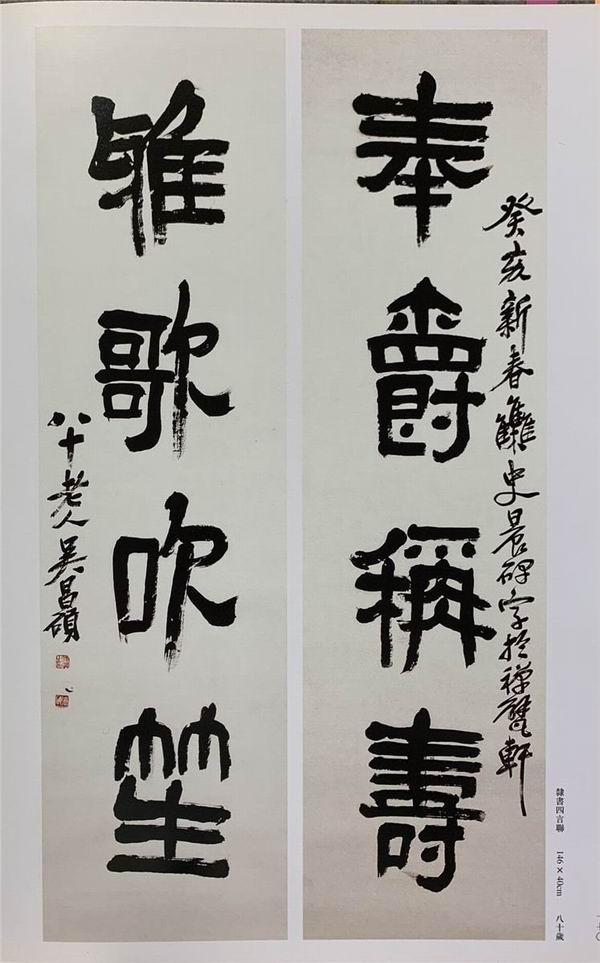 奉爵稱壽
癸亥新春雧史晨碑字於禪甓軒
雅歌吹笙
八十老人吳昌碩
隸書四言聯 146×40cm 八十歲